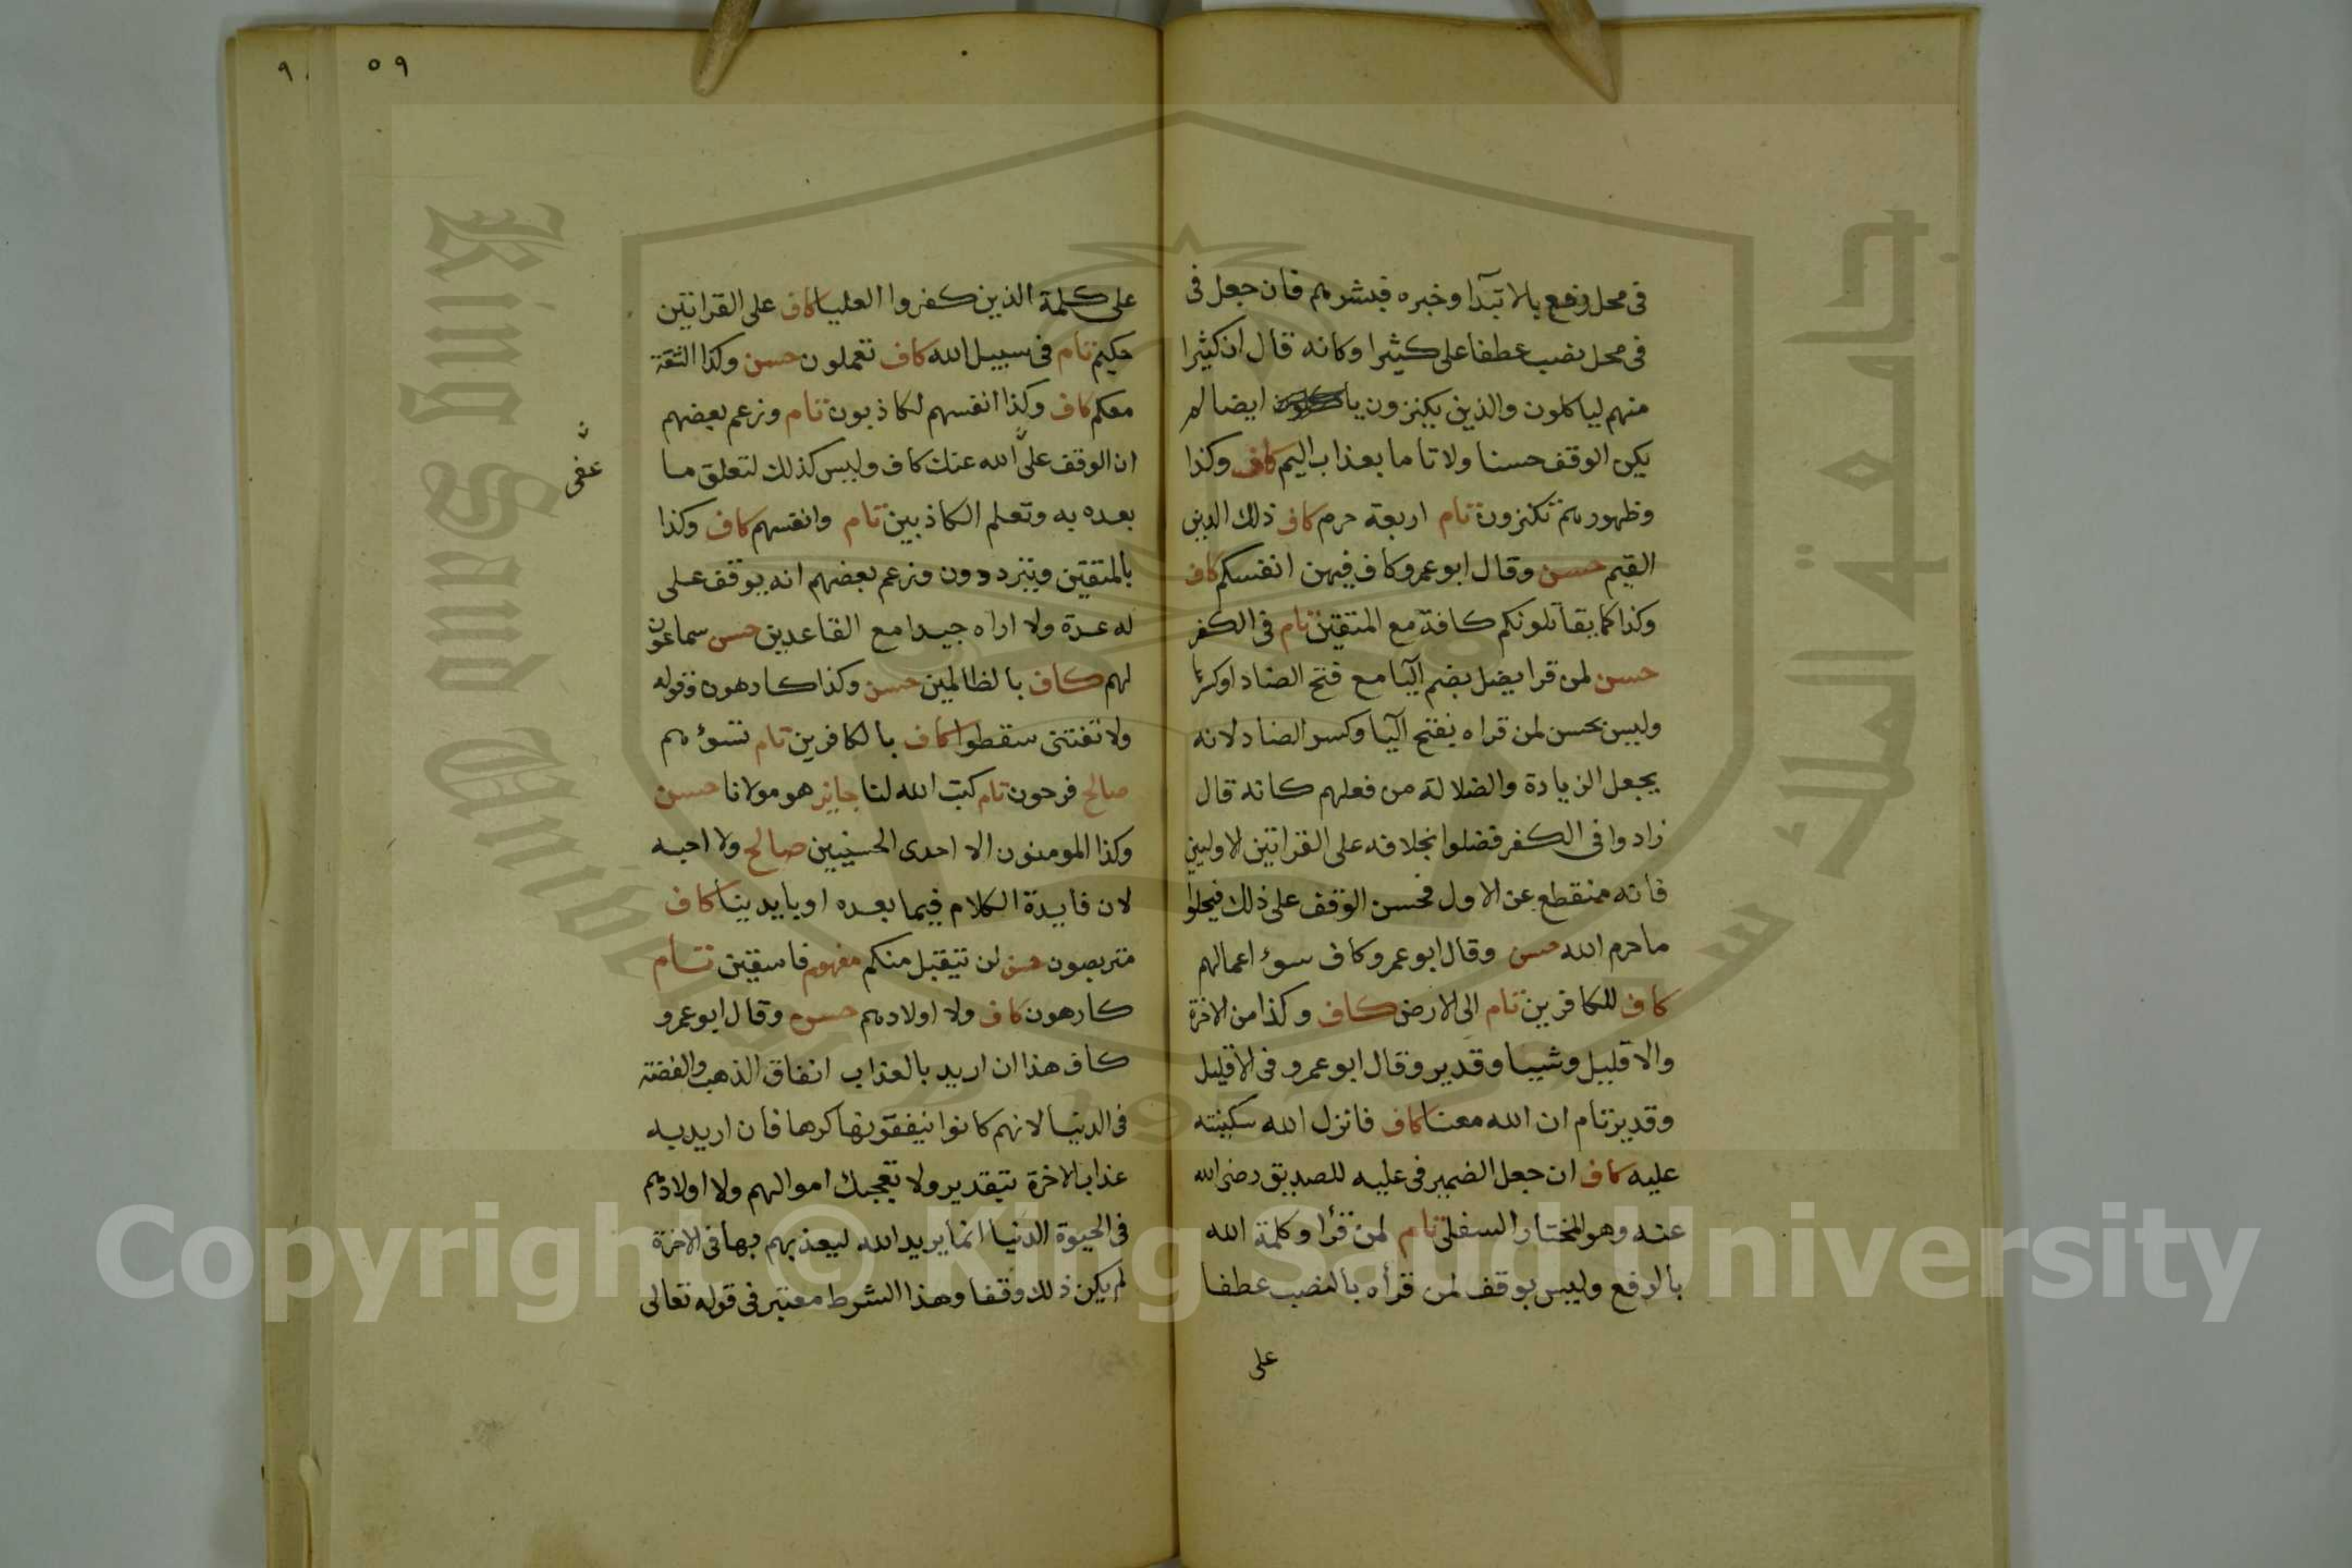 فى محل رفع بالابتدا وخبره فبشرهم فان جعل فى
فى محل نصب عطفا على كثيرا وكانه قال ان كثيرا
منهم لياكلون والذين يكنزون ايضا لم
يكن الوقف حسنا ولا تاما بعذاب اليم كاف وكذا
وظهورهم تكنزون تام اربعة حرم كاف ذلك الدين
القيم حسن وقال ابو عمرو كاف فيهن انفسكم كاف
وكذا كما يقاتلونكم كافة مع المتقين تام فى الكفر
حسن لمن قرا يضل بضم اليا مع فتح الضاد او كسرها
وليس بحسن لمن قراه بفتح اليا وكسر الضاد لانه
يجعل الزيادة والضلالة من فعلهم كانه قال
زادوا فى الكفر فضلوا بخلافه على القراتين الاوليين
فانه منقطع عن الاول فحسن الوقف على ذلك فيحلوا
ما حرم الله حسن وقال ابو عمرو كاف سوء اعمالهم
كاف للكافرين تام الى الارض كاف وكذا من الاخرة
والا قليل وشيا وقدير وقال ابو عمرو فى الا قليل
وقدير تام ان الله معنا كاف فانزل الله سكينته
عليه كاف ان جعل الضمير فى عليه للصديق رضى الله
عنه وهو المختار السفلى تام لمن قرا وكلمة الله
بالرفع وليس بوقف لمن قرأه بالنصب عطفا
على
٥٩
٩
على كلمة الذين كفروا العليا كاف على القراتين
حكيم تام فى سبيل الله كاف تعملون حسن وكذا الشقة
معكم كاف وكذا انفسهم لكاذبون تام وزعم بعضهم
ان الوقف على الله عنك كاف وليس كذلك لتعلق ما
عفى
بعده به وتعلم الكاذبين تام وانفسهم كاف وكذا
بالمتقين ويترددون وزعم بعضهم انه يوقف على
له عدة ولا اراه جيدا مع القاعدين حسن سماعون
لهم كاف بالظالمين حسن وكذا كارهون وقوله
ولا تفتنى سقطوا كاف بالكافرين تام تسوءهم
صالح فرحون تام كتب الله لنا جايز هو مولانا حسن
وكذا المومنون الا احدى الحسنيين صالح ولا احبه
لان فايدة الكلام فيما بعده او بايدينا كاف
متربصون حسن لن يتقبل منكم مفهوم فاسقين تام
كارهون كاف ولا اولادهم حسن وقال ابو عمرو
كاف هذا ان اريد بالعذاب انفاق الذهب والفضة
فى الدنيا لانهم كانوا ينفقونها كرها فان اريد به
عذاب الاخرة بتقدير ولا تعجبك اموالهم ولا اولادهم
فى الحيوة الدنيا انما يريد الله ليعذبهم بها فى الاخرة
لم يكن ذلك وقفا وهذا الشرط معتبر فى قوله تعالى
جامعة الملك سعود
King Saud University
1957
Copyright © King Saud University